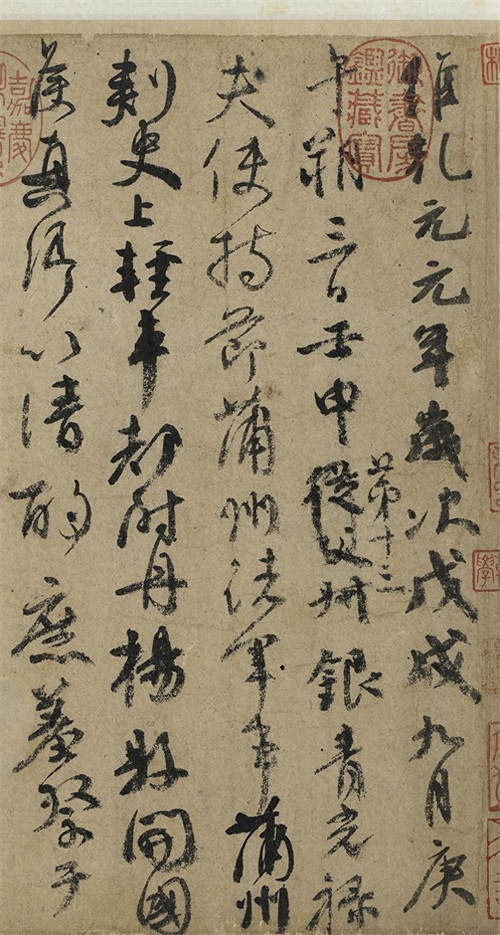 維乾元元年歲次戊戌九月庚
午朔三日壬申從父叔銀青光祿
第十三
夫使持節蒲州諸軍事蒲州
刺史上輕車都尉丹楊縣開國
侯真卿以清酌庶羞祭于
御書房
鑑藏寶
嘉慶